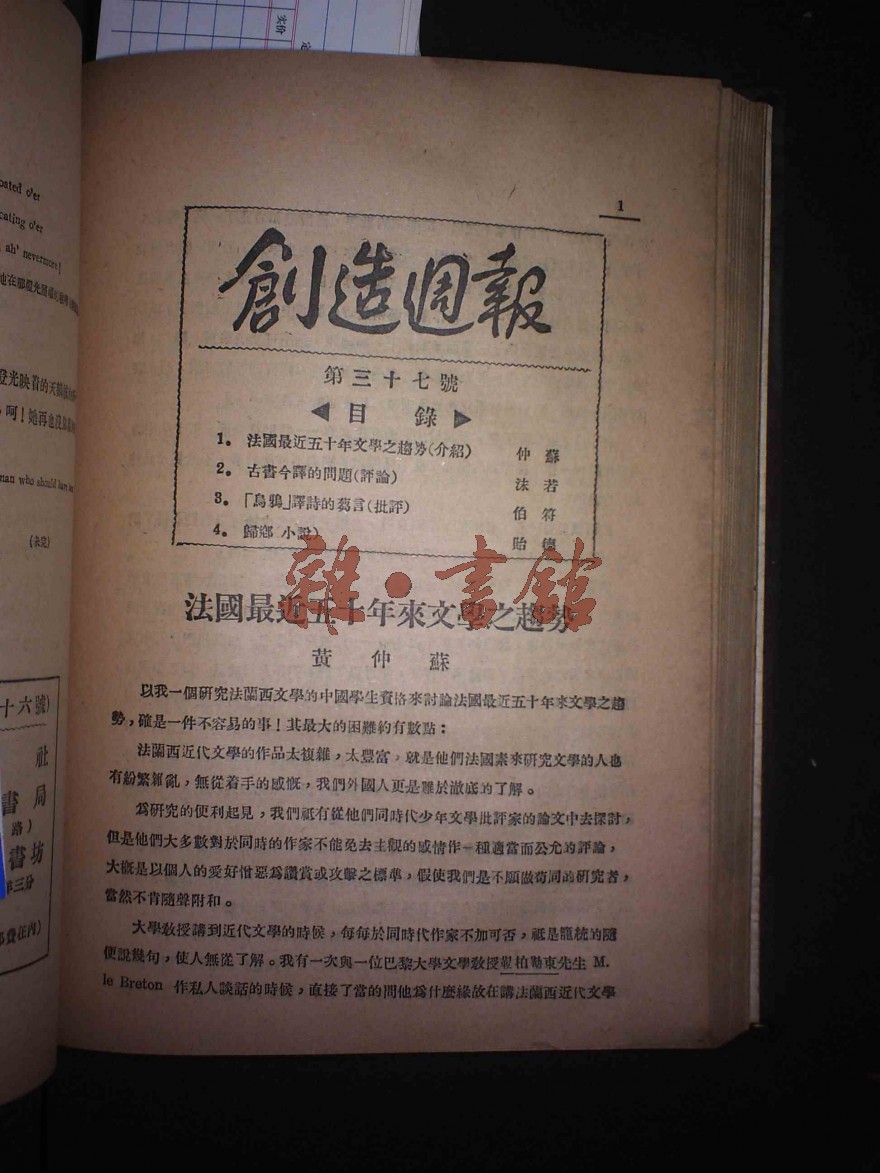 实价
定
oated o'er
cating o'er
ah' nevermore!
man who should
(未完)
十六號)
社
書局
路)
書坊
1
創造週報
第三十七號
目錄
1。 法國最近五十年文學之趨勢(介紹) 仲蘇
2。 古書今譯的問題(評論) 沫若
3。 「烏鴉」譯詩的芻言(批評) 伯符
4。 歸鄉 小說) 貽德
雜·書館
法國最近五十年來文學之趨勢
黃仲蘇
以我一個研究法蘭西文學的中國學生資格來討論法國最近五十年來文學之趨
勢,確是一件不容易的事!其最大的困難約有數點:
法蘭西近代文學的作品太複雜,太豐富,就是他們法國素來研究文學的人也
有紛繁雜亂,無從着手的感慨,我們外國人更是難於澈底的了解。
爲研究的便利起見,我們祇有從他們同時代少年文學批評家的論文中去探討,
但是他們大多數對於同時的作家不能免去主觀的感情作一種適當而公允的評論,
大概是以個人的愛好憎惡爲讚賞或攻擊之標準,假使我們是不願做苟同的研究者,
當然不肯隨聲附和。
大學敎授講到近代文學的時候,每每於同時代作家不加可否,祇是籠統的隨
便說幾句,使人無從了解。我有一次與一位巴黎大學文學敎授柏勒東先生 M.
le Breton 作私人談話的時候,直接了當的問他爲什麼緣故在講法蘭西近代文學